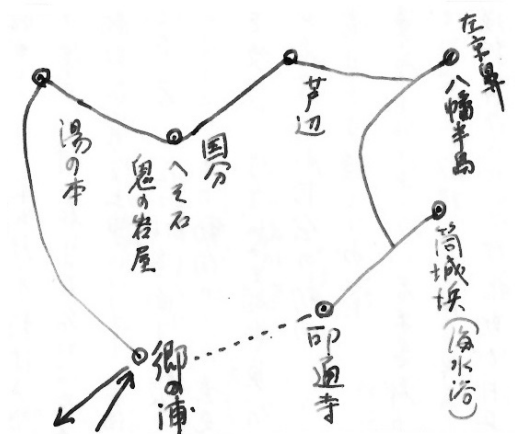 左京鼻
八幡半島
芦辺
国分
へそ石
鬼の岩屋
湯の本
筒城浜(海水浴)
印通寺
郷の浦